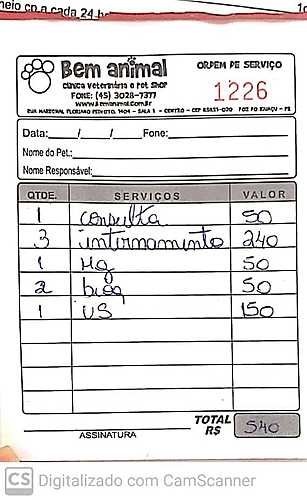 meio cp a cada 24 h
Bem animal
Clínica Veterinária e Pet Shop
FONE: (45) 3028-7377
www.bemanimal.com.br
RUA MARECHAL FLORIANO PEIXOTO, 1404 - SALA 1 - CENTRO - CEP 85851-020 FOZ DO IGUAÇU - PR
ORDEM DE SERVIÇO
1226
Data:___/___/___Fone:
Nome do Pet.:
Nome Responsável:
QTDE. SERVIÇOS VALOR
1 consulta 50
3 internamento 240
1 HG 50
2 bioq 50
1 US 150
TOTAL R$ 540
ASSINATURA
CS Digitalizado com CamScanner